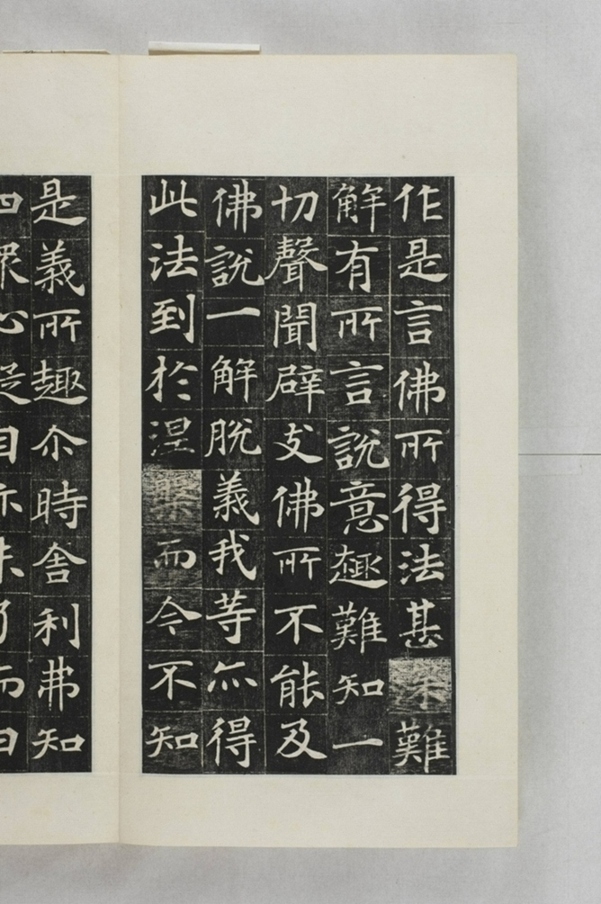 作是言佛所得法甚深難
解有所言說意趣難知一
切聲聞辟支佛所不能及
佛說一解脫義我等亦得
此法到於涅槃而今不知
是義所趣尒時舍利弗知
四眾心疑自亦未了而白